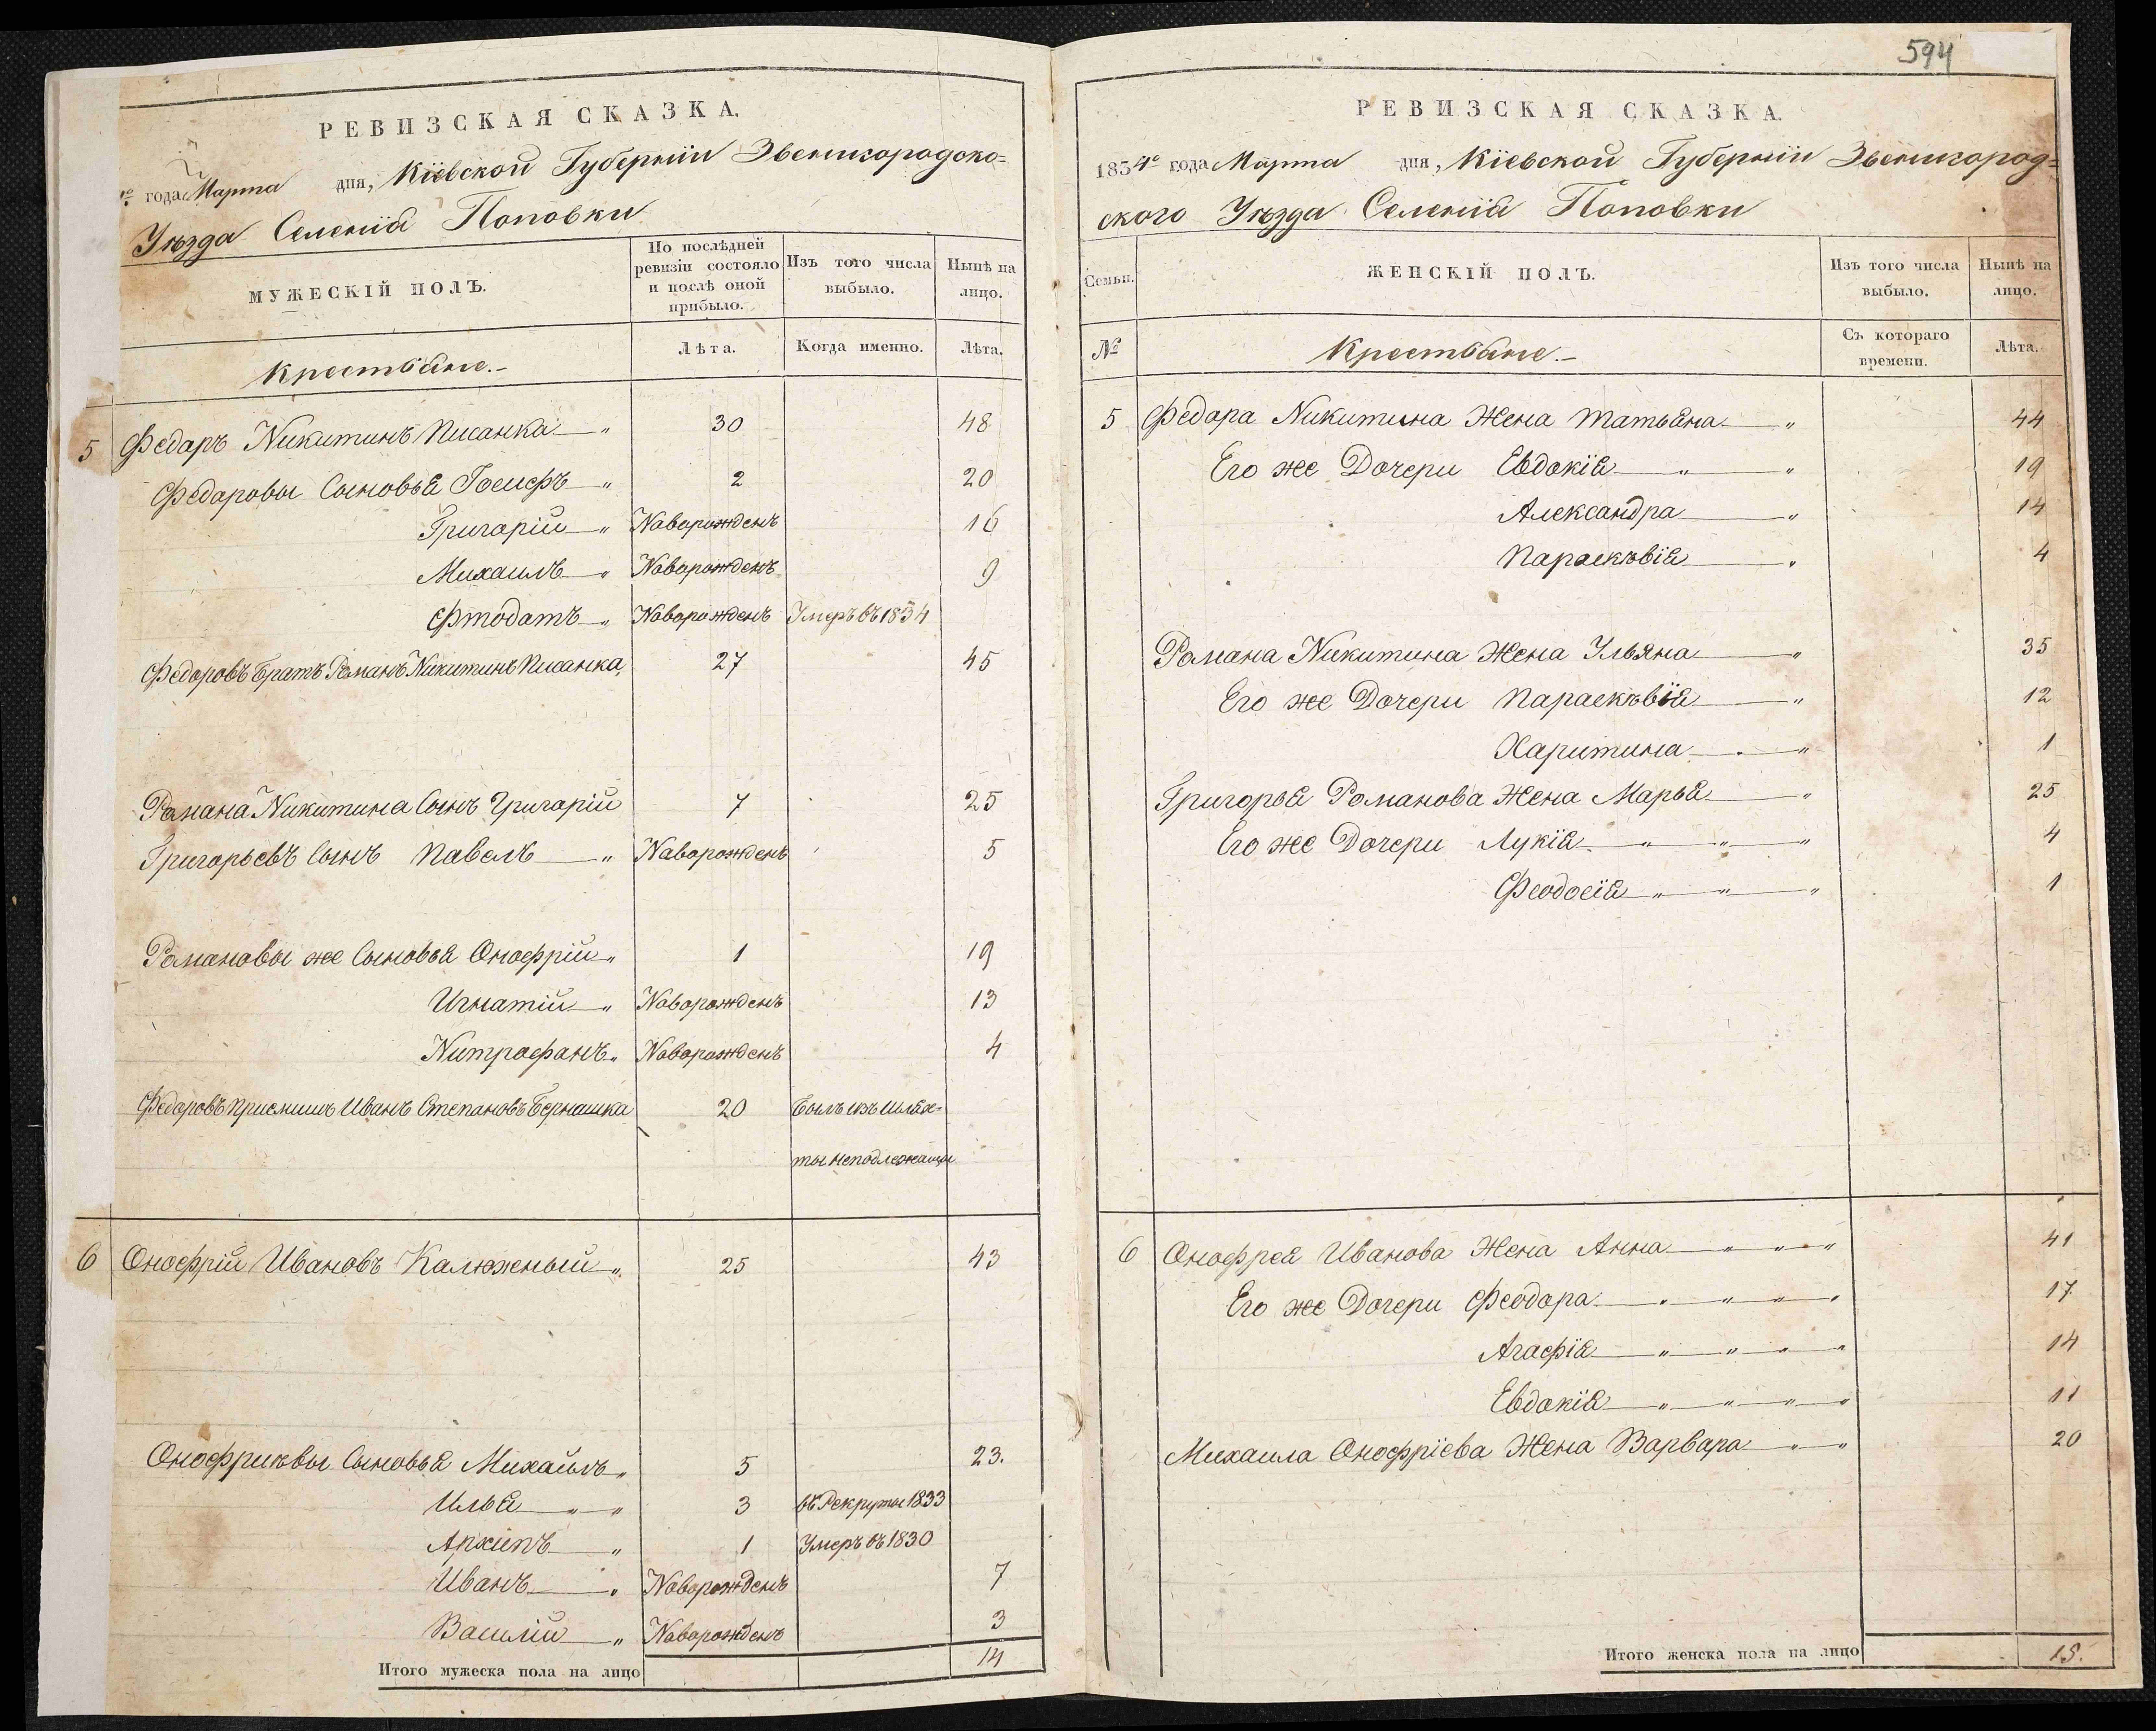 РЕВИЗСКАЯ СКАЗКА.
года Марта дня, Кіевской Губерніи Звенигородско-
Уѣзда Селенія Поповки
МУЖЕСКІЙ ПОЛЪ.
По послѣдней ревизіи состояло и послѣ оной прибыло.
Изъ того числа выбыло.
Нынѣ на лицо.
Лѣта.
Когда именно.
Лѣта.
Крестьяне.-
5 Федаръ Никитинъ Писанка 30 48
Федоровы Сыновья Іосифъ 2 20
Григорій Новорожденъ 16
Михаилъ Новорожденъ 9
Новорожденъ Умеръ въ 1834
Федоровъ Братъ Романъ Никитинъ Писанка 27 45
Романа Никитина Сынъ Григорій 7 25
Григорьевъ Сынъ Павелъ Новорожденъ 5
Романовы же Сыновья Онофрій 1 19
Игнатій Новорожденъ 13
Митрофанъ Новорожденъ 4
Федоровъ Приемышъ Иванъ Степановъ 20
6 Онофрій Ивановъ Калюжный 25 43
Онофріевы Сыновья Михайлъ 5 23.
Илья 3 въ Рекруты 1833
Архипъ 1 Умеръ въ 1830
Иванъ Новорожденъ 7
Василій Новорожденъ 3
Итого мужеска пола на лицо 14
594
РЕВИЗСКАЯ СКАЗКА.
1834го года Марта дня, Кіевской Губерніи Звенигород-
ского Уѣзда Селенія Поповки
Семьи.
ЖЕНСКІЙ ПОЛЪ.
Изъ того числа выбыло.
Нынѣ на лицо.
№
Крестьяне.-
Съ котораго времени.
Лѣта.
5 Федора Никитина Жена Татьяна 44
Его же Дочери Евдокія 19
Александра 14
Параскѣвія 4
Романа Никитина Жена Ульяна 35
Его же Дочери Параскѣвія 12
Харитина 1
Григорья Романова Жена Марья 25
Его же Дочери Лукія 4
Феодосія 1
6 Онофрея Иванова Жена Анна 41
Его же Дочери Феодора 17
Агафія 14
Евдокія 11
Михаила Онофріева Жена Варвара 20
Итого женска пола на лицо 15.